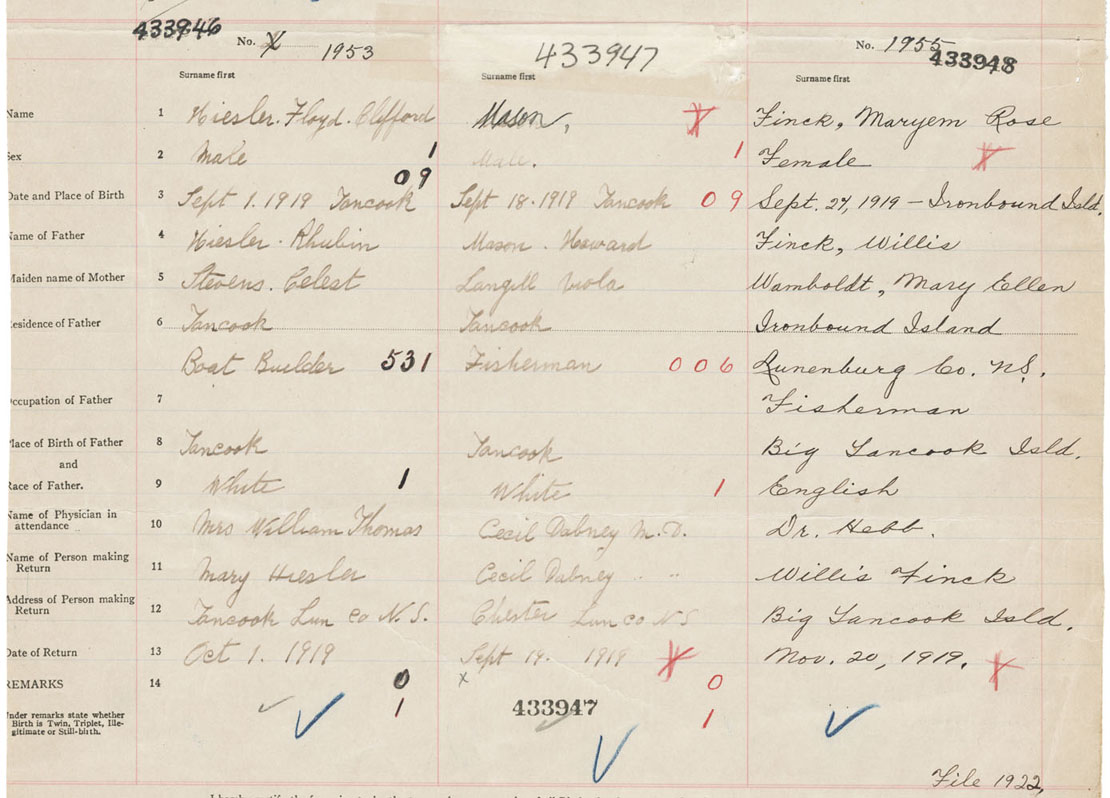 433946 No. X 1953 433947 No. 1955 433948
Surname first Surname first Surname first
Name 1 Hiesler. Floyd. Clifford Mason, Finck, Maryem Rose
Sex 2 Male 1 Male. 1 Female
09
Date and Place of Birth 3 Sept 1. 1919 Tancook Sept 18. 1919 Tancook 09 Sept. 27, 1919 - Ironbound Isld.
Name of Father 4 Hiesler. Rhubin Mason. Howard Finck, Willis
Maiden name of Mother 5 Stevens. Celest Langill Viola Wamboldt, Mary Ellen
esidence of Father 6 Tancook Tancook Ironbound Island
Boat Builder 531 Fisherman 006 Lunenburg Co. N.S.
Occupation of Father 7 Fisherman
Place of Birth of Father 8 Tancook Tancook Big Tancook Isld.
and
Race of Father. 9 White 1 White 1 English
Name of Physician in
attendance 10 Mrs William Thomas Cecil Dabney M.D. Dr. Hebb.
Name of Person making
Return 11 Mary Hiesler Cecil Dabney " " Willis Finck
Address of Person making
Return 12 Tancook Lun Co N.S. Chester Lun Co N S Big Tancook Isld.
Date of Return 13 Oct 1. 1919 Sept 19. 1919 Nov. 20, 1919.
REMARKS 14 0 x 0
Under remarks state whether
Birth is Twin, Triplet, Ille-
gitimate or Still-birth.
1 433947 1
File 1922,